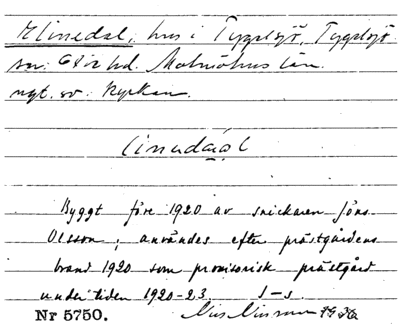 Klinedal, hus i Tygelsjö, Tygelsjö
sn. Oxie hd. Malmöhus län.
ngt. sv. kyrkan.
linedal
Byggt före 1920 av snickaren Jöns
Olsson; användes efter prästgårdens
brand 1920 som provisorisk prästgård
under tiden 1920-23. S-s.
Nr 5750. Nils Nilsson